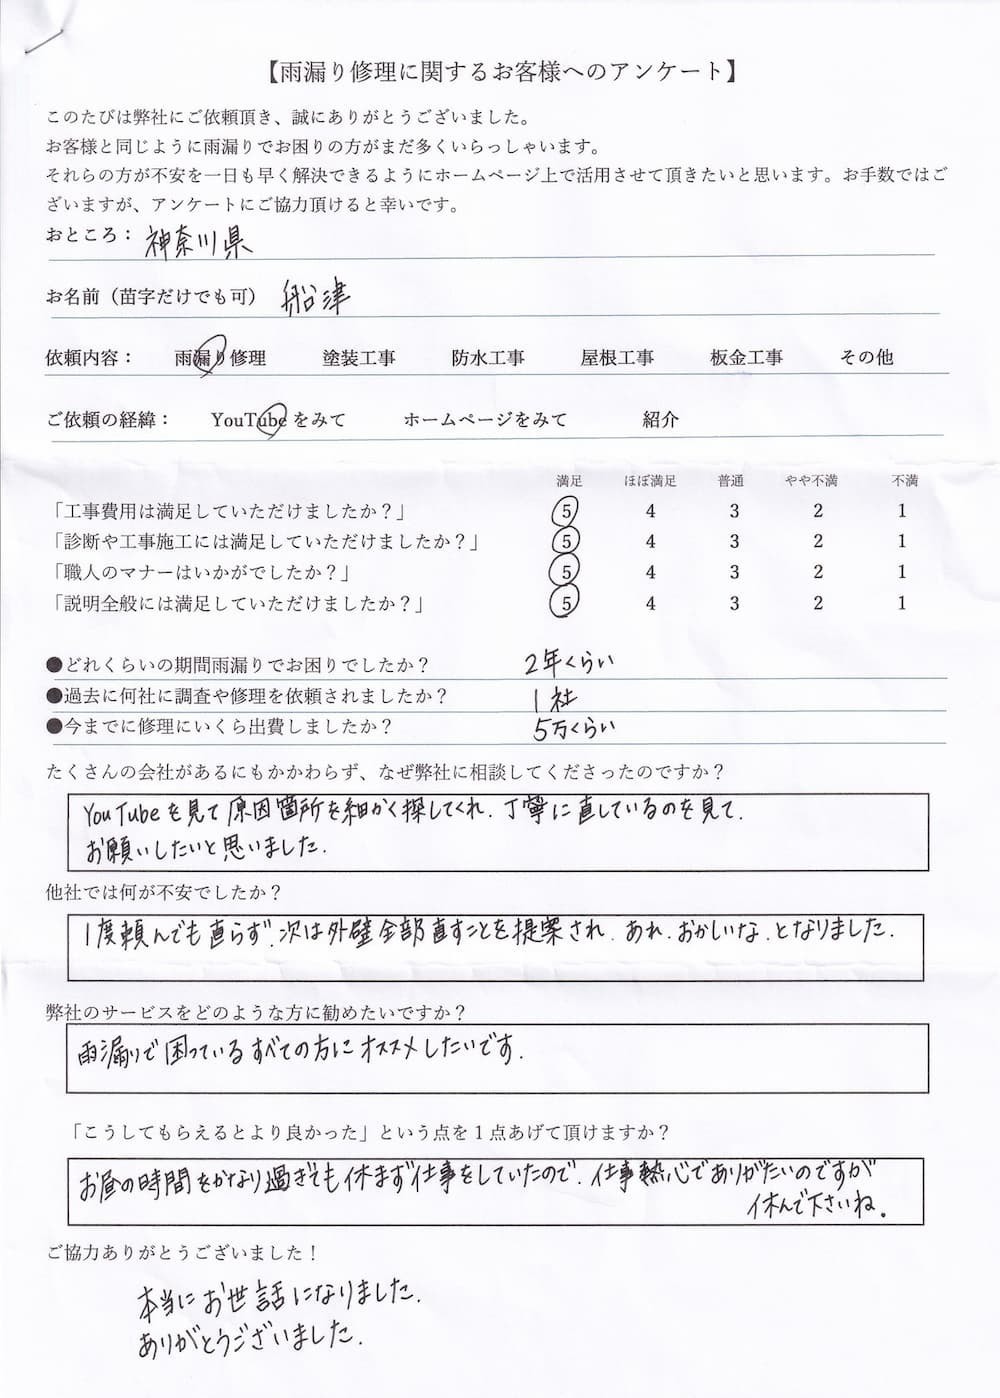 【雨漏り修理に関するお客様へのアンケート】
このたびは弊社にご依頼頂き、誠にありがとうございました。
お客様と同じように雨漏りでお困りの方がまだ多くいらっしゃいます。
それらの方が不安を一日も早く解決できるようにホームページ上で活用させて頂きたいと思います。お手数ではご
ざいますが、アンケートにご協力頂けると幸いです。
おところ： 神奈川県
お名前（苗字だけでも可） 船津
依頼内容： 雨漏り修理 塗装工事 防水工事 屋根工事 板金工事 その他
ご依頼の経緯： YouTubeをみて ホームページをみて 紹介
満足 ほぼ満足 普通 やや不満 不満
「工事費用は満足していただけましたか？」 5 4 3 2 1
「診断や工事施工には満足していただけましたか？」 5 4 3 2 1
「職人のマナーはいかがでしたか？」 5 4 3 2 1
「説明全般には満足していただけましたか？」 5 4 3 2 1
●どれくらいの期間雨漏りでお困りでしたか？ 2年くらい
●過去に何社に調査や修理を依頼されましたか？ 1社
●今までに修理にいくら出費しましたか？ 5万くらい
たくさんの会社があるにもかかわらず、なぜ弊社に相談してくださったのですか？
YouTubeを見て原因箇所を細かく探してくれ、丁寧に直しているのを見て、
お願いしたいと思いました。
他社では何が不安でしたか？
1度頼んでも直らず、次は外壁全部直すことを提案され、あれ、おかしいな、となりました。
弊社のサービスをどのような方に勧めたいですか？
雨漏りで困っているすべての方にオススメしたいです。
「こうしてもらえるとより良かった」という点を１点あげて頂けますか？
お昼の時間をかなり過ぎても休まず仕事をしていたので、仕事熱心でありがたいのですが
休んで下さいね。
ご協力ありがとうございました！
本当にお世話になりました。
ありがとうございました。